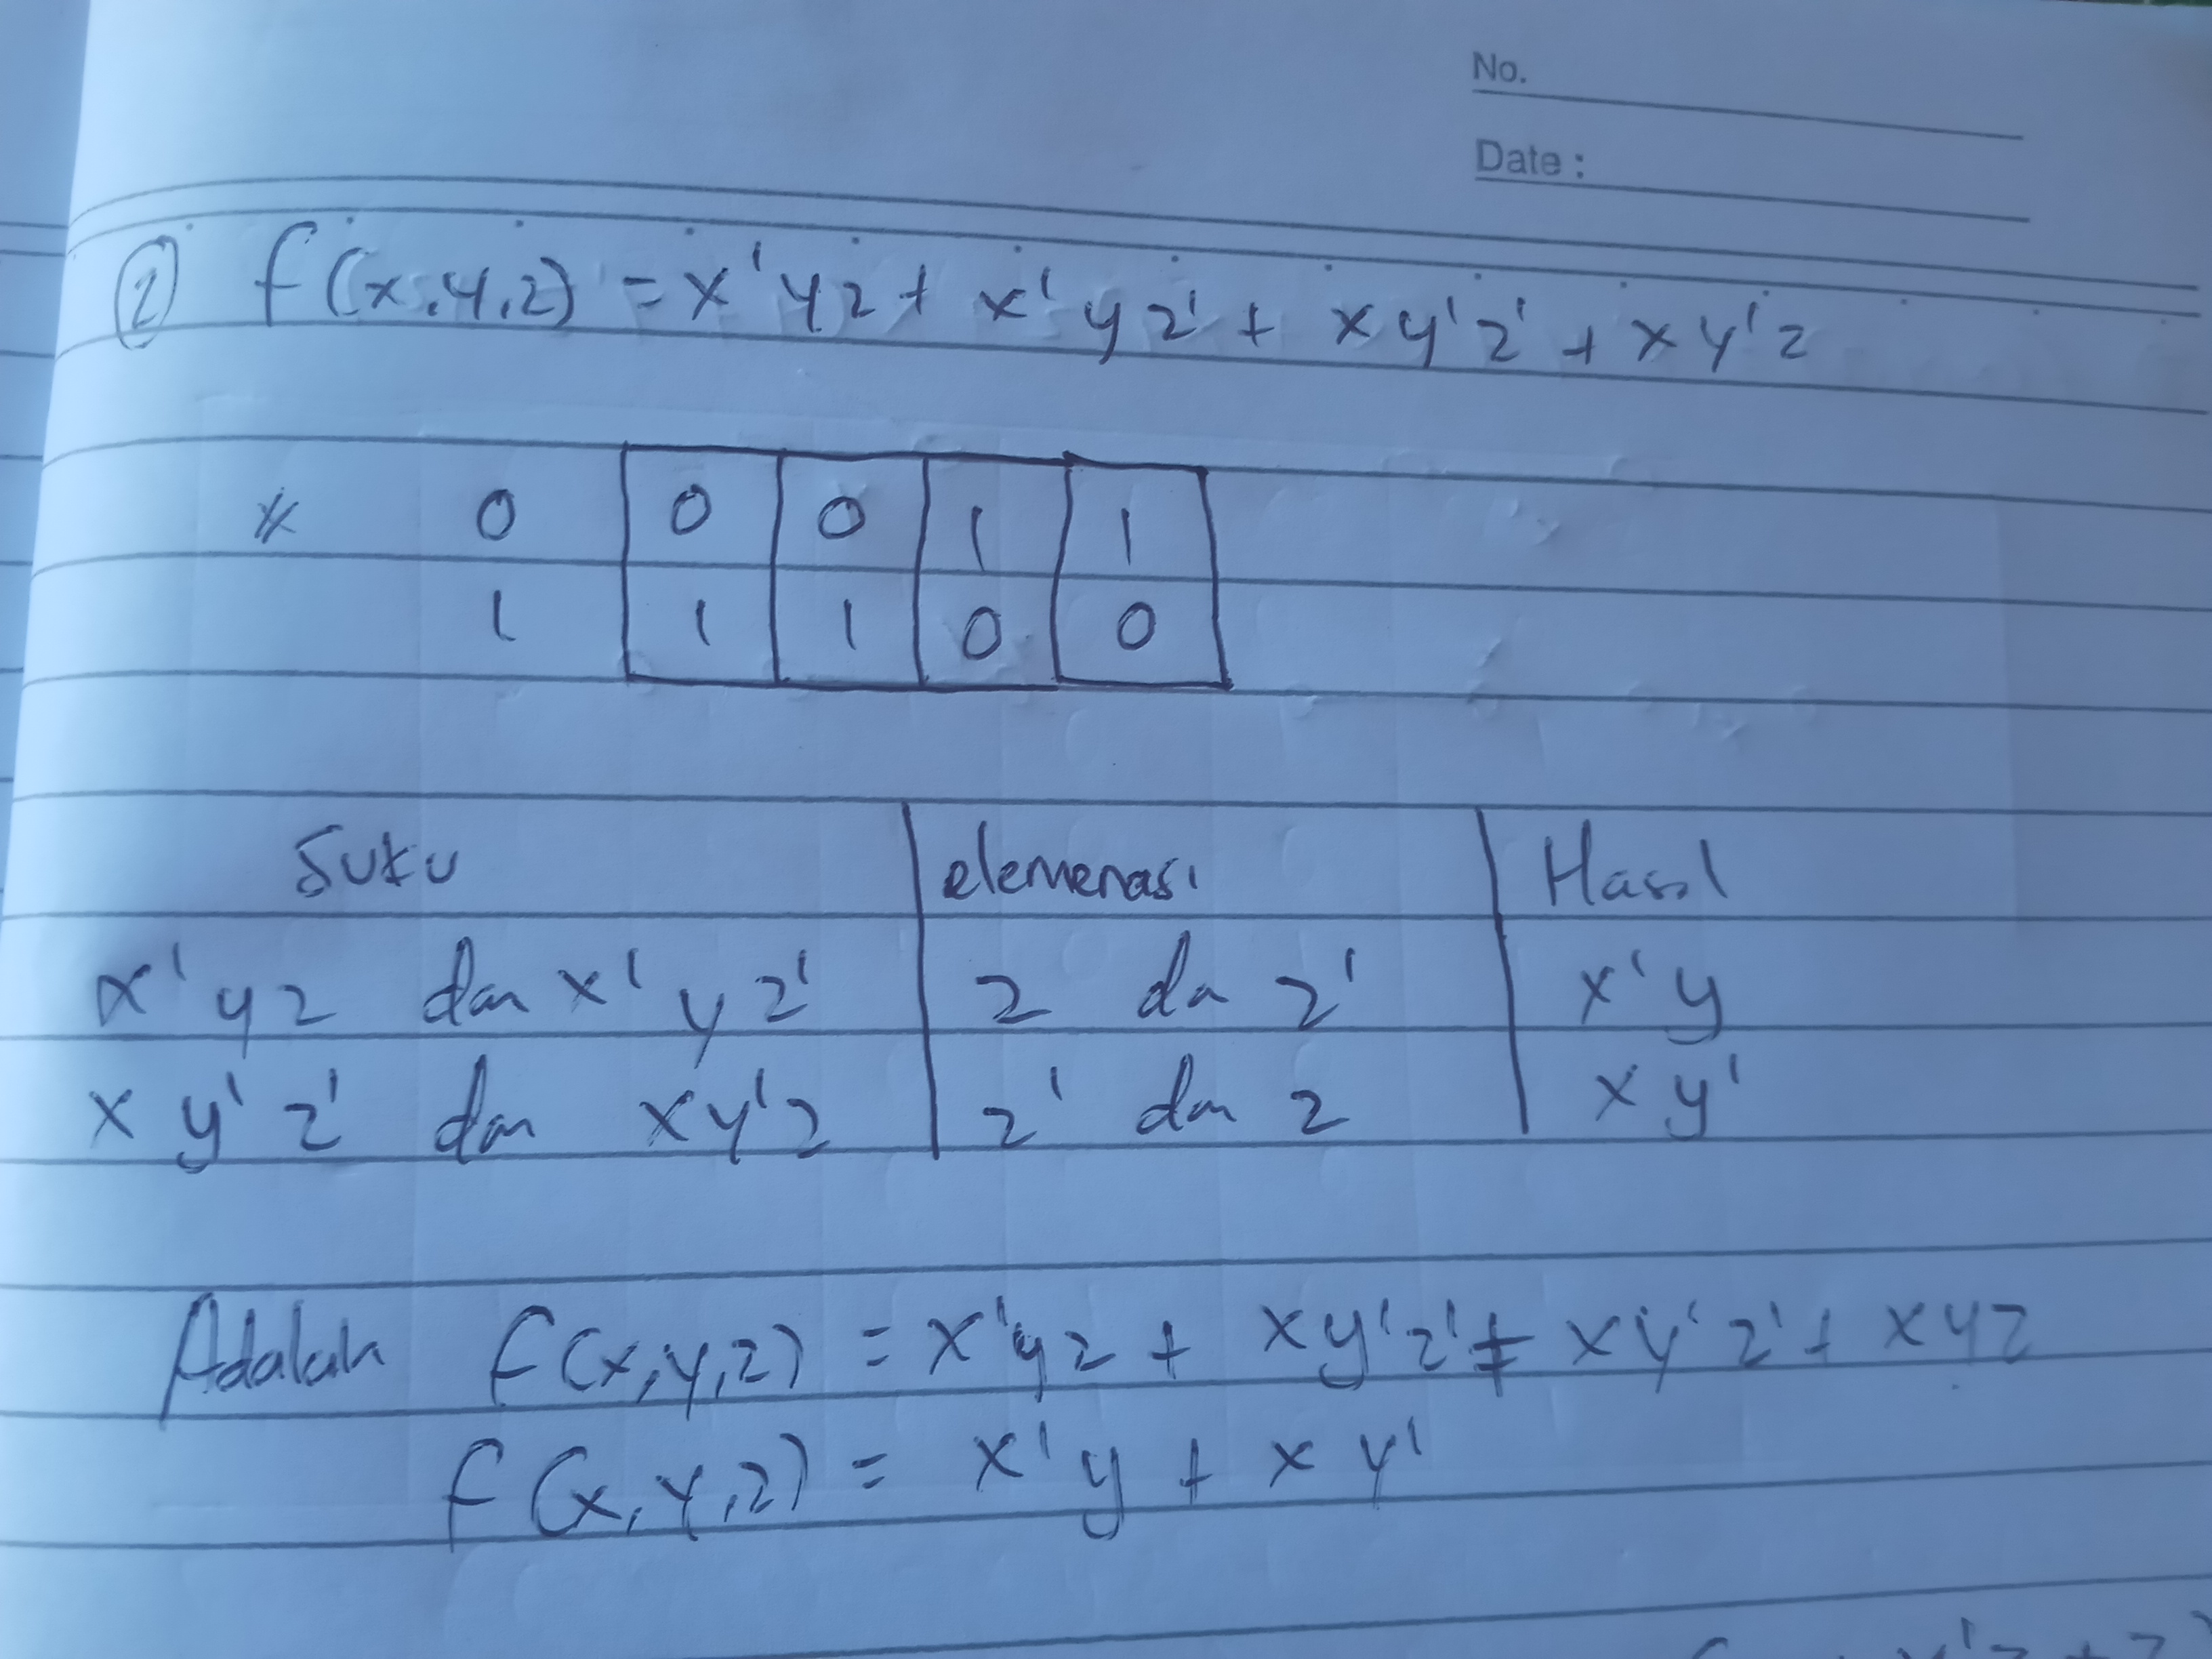 No.
Date :
② f(x,y,z) = x'yz + x'yz' + xy'z' + xy'z
x 0 0 0 1 1
1 1 1 0 0
Suku elemenasi Hasil
x'yz dan x'yz' z dan z' x'y
xy'z' dan xy'z z' dan z xy'
Adalah f(x,y,z) = x'yz + xy'z' + xy'z' + xyz
f(x,y,z) = x'y + xy'